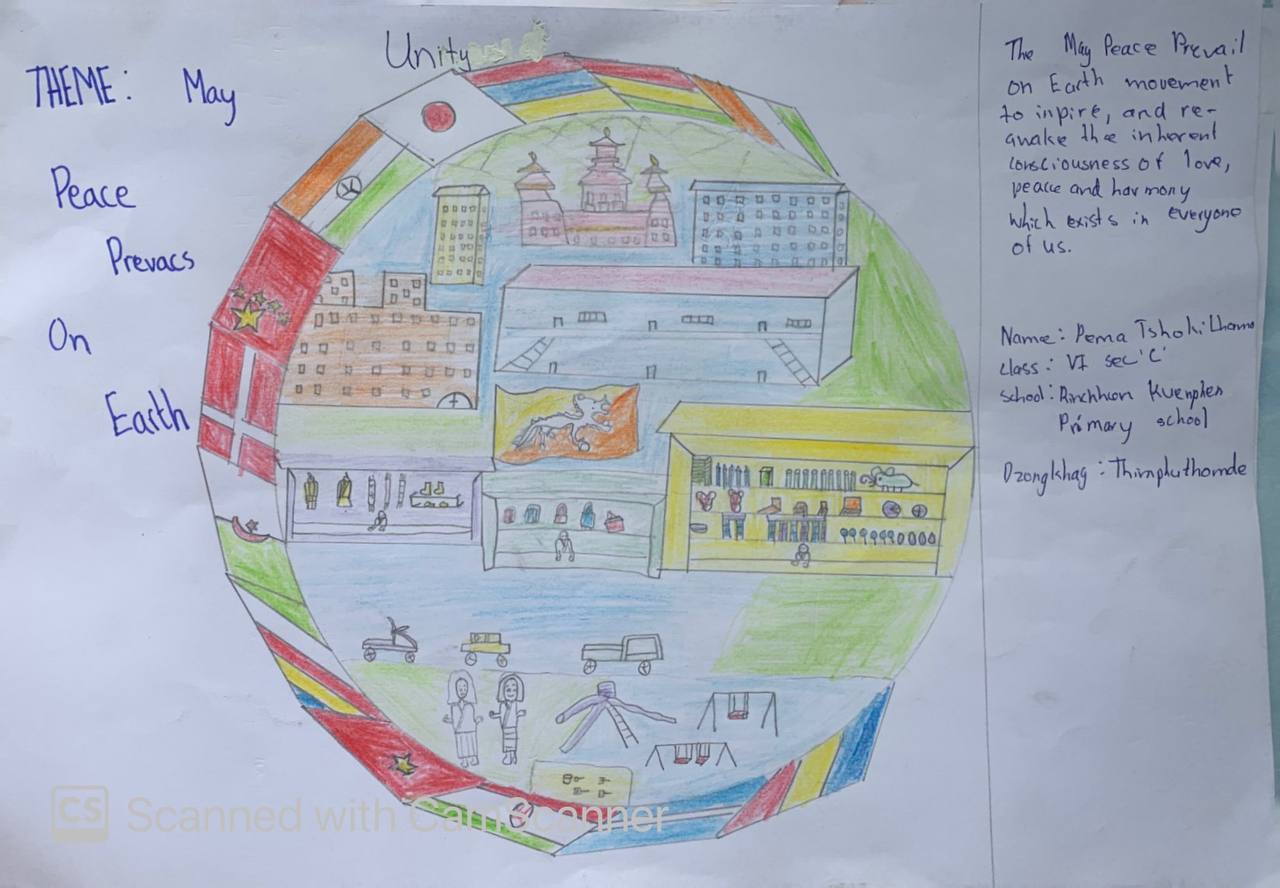 Unity
THEME: May
Peace
Prevacs
On
Earth
The May Peace Prevail
on Earth movement
to inpire, and re-
awake the inherent
consciousness of love,
peace and harmony
which exists in everyone
of us.
Name: Pema Tshoki Lhamo
class: VI sec 'C'
school: Rinchhen Kuenphen
Primary school
Dzongkhag: Thimphuthomde
CS Scanned with CamScanner